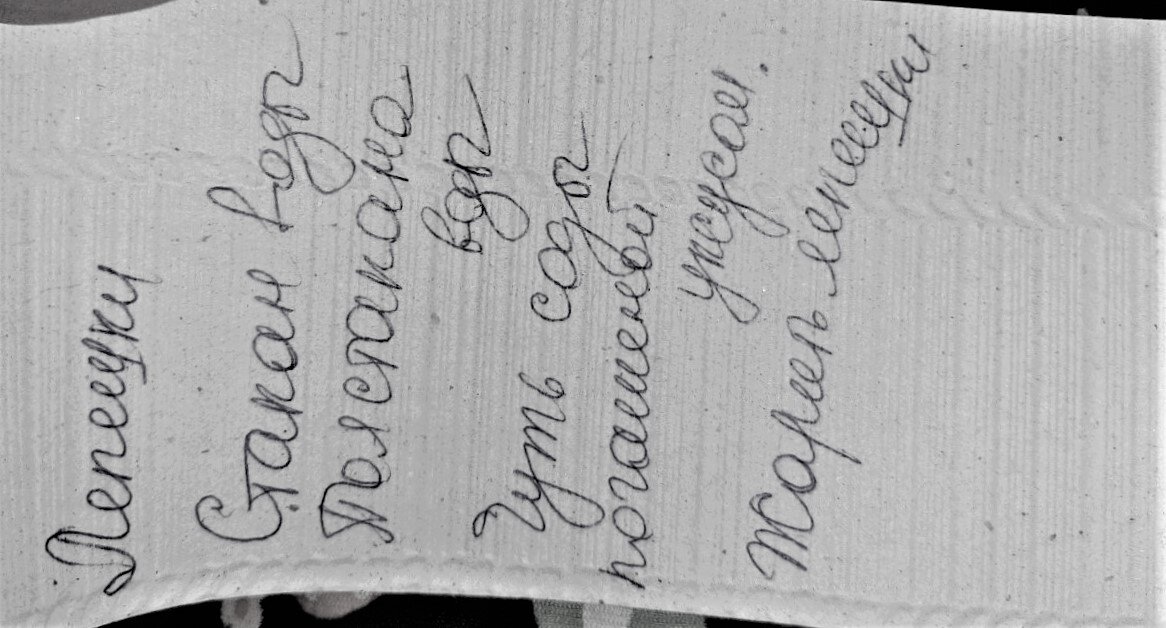 Лепешки
Стакан воды
Полстакана
воды
Чуть соды
погашеной
уксусом.
Жарить лепешки